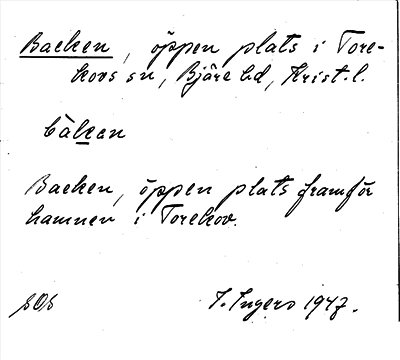 Backen, öppen plats i Tore-
kovs sn, Bjäre hd, Krist. l.
bàken
Backen, öppen plats framför
hamnen i Torekov.
I. Ingers 1947.